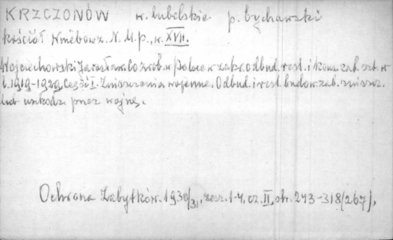 KRZCZONÓW w. lubelskie p. bychawski
kościół Wniebowz. N.M.P., w. XVII.
Wojciechowski Jarosław. Co zrob. w Polsce w zakr. odbud. rest. i kons. zab. szt. w
l. 1919-1929, Część I. Zniszczenia wojenne. Odbud. i rest. budow. zab. zniszcz.
lub uszkodz. przez wojnę.
Ochrona Zabytków. 1930/31, zesz. 1-4, cz. II, str. 273-318 (267).